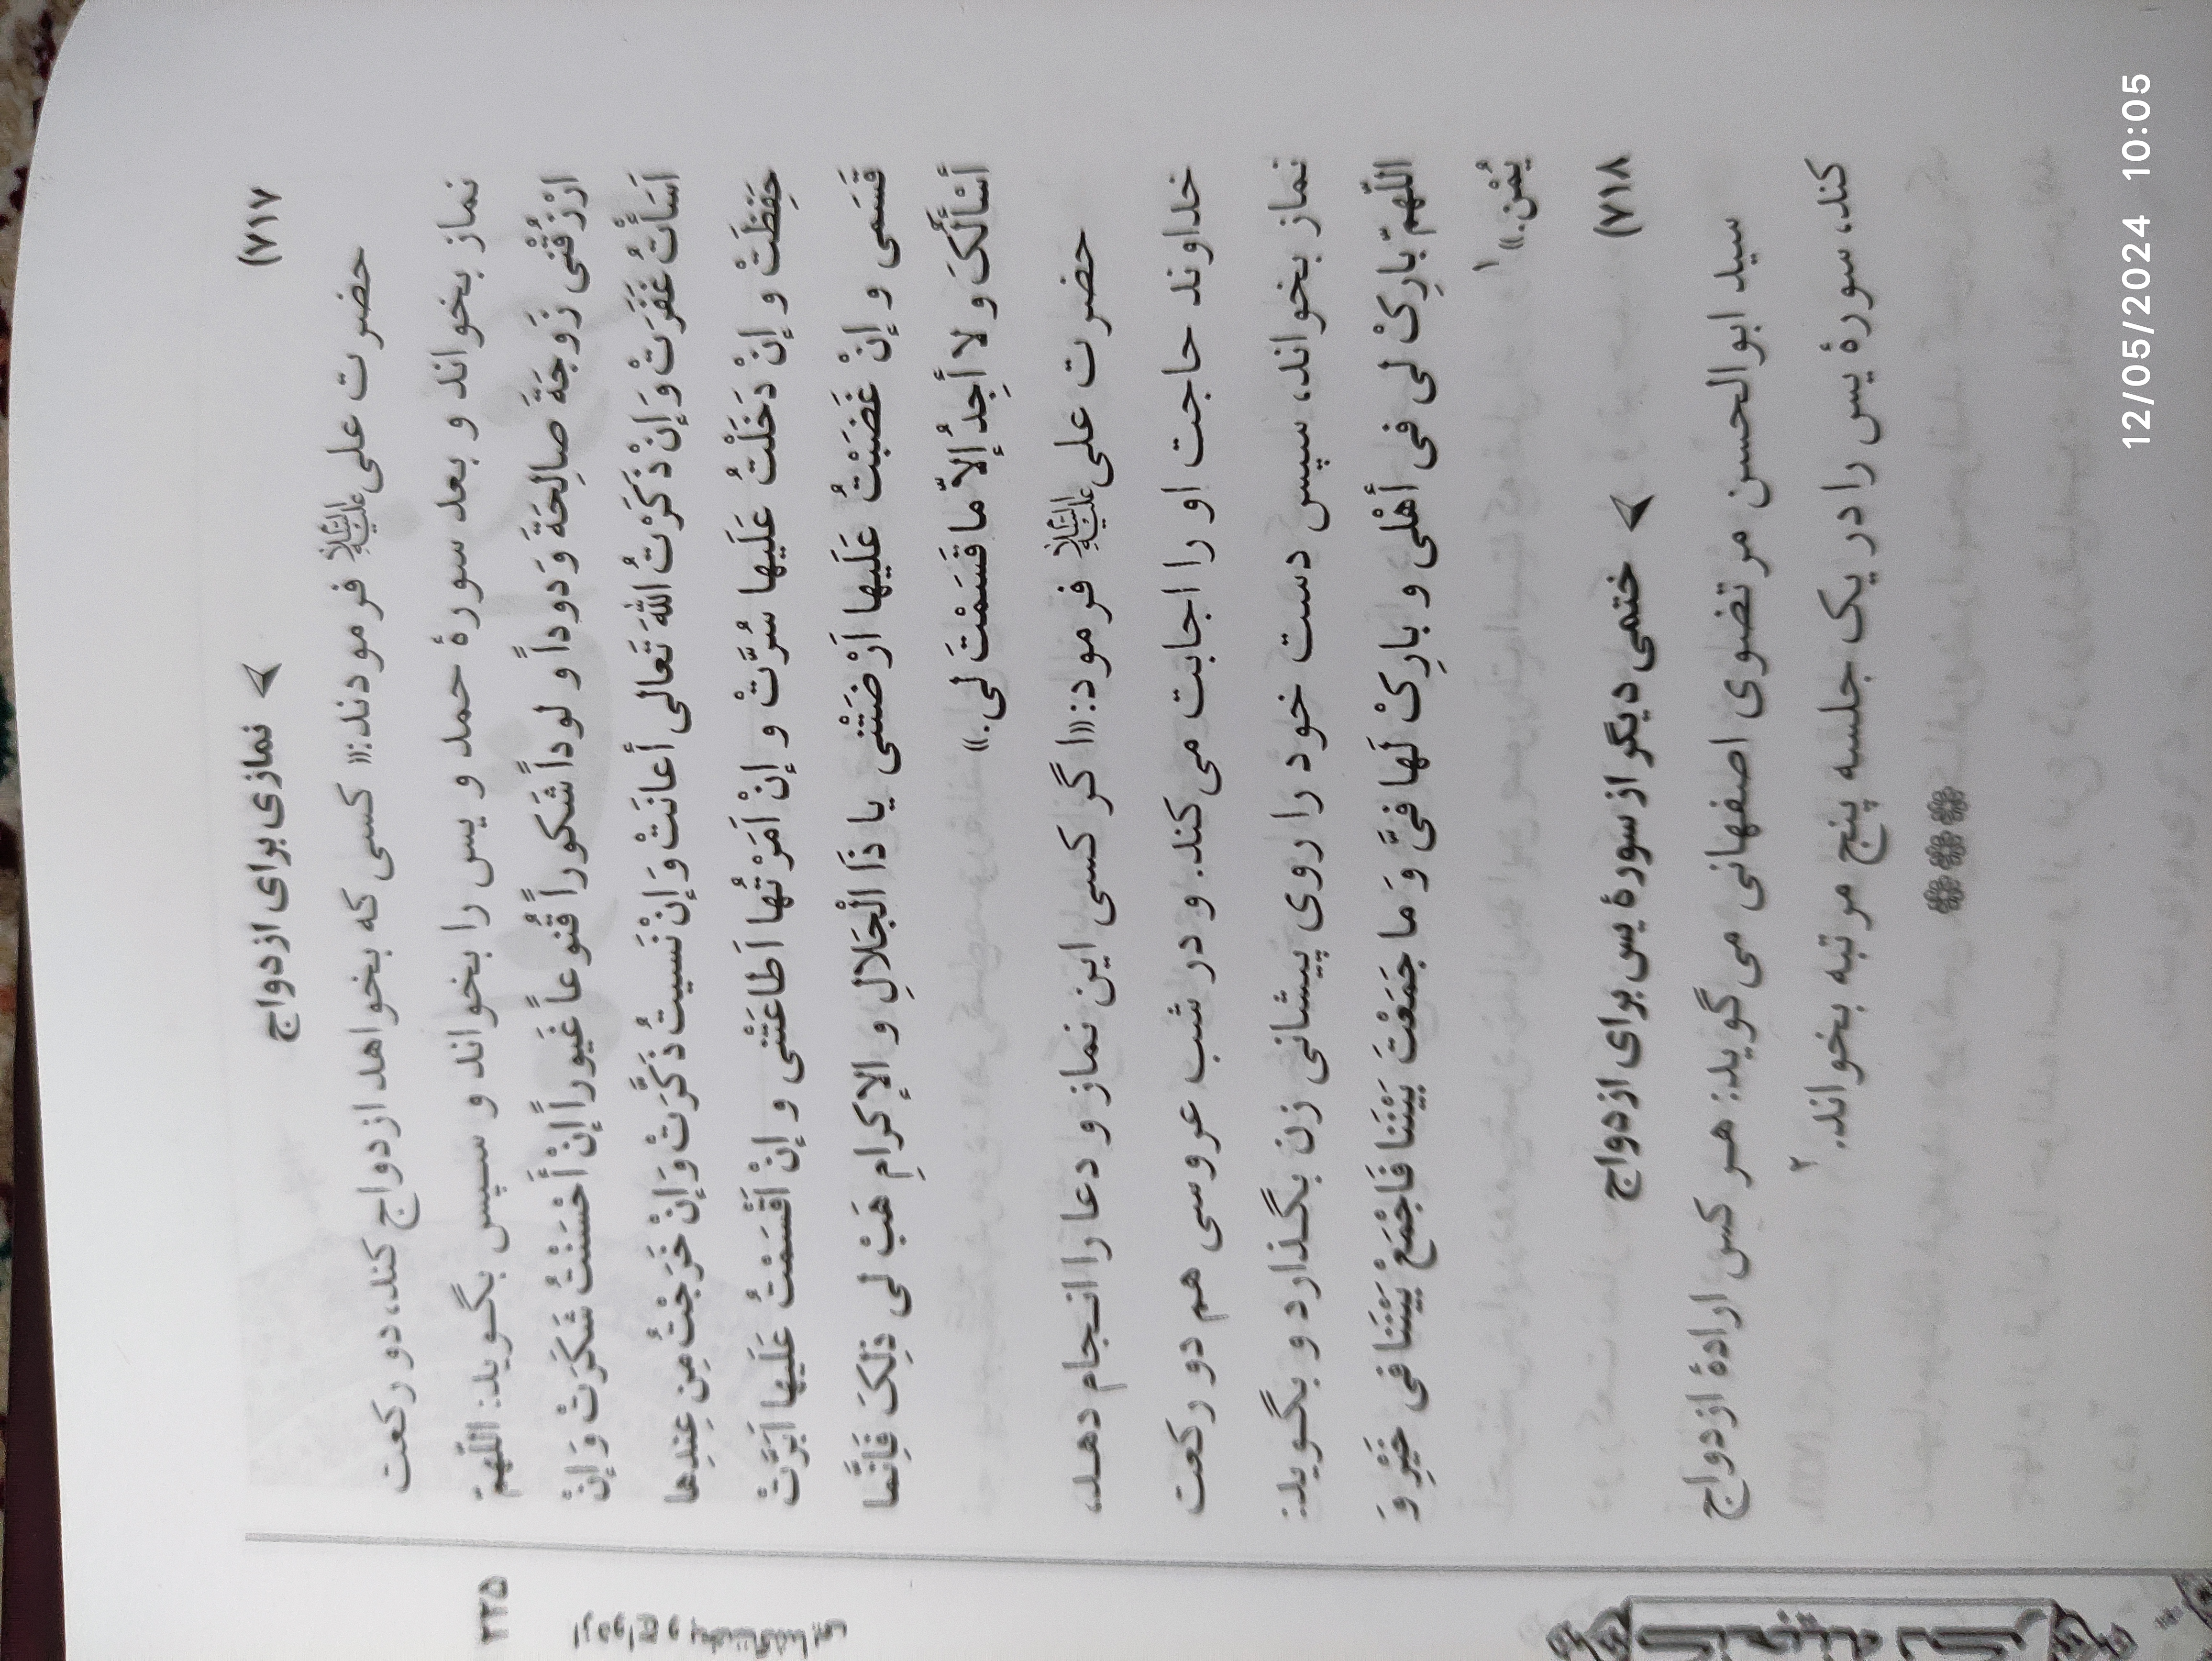 ۷۱۷)
نمازی برای ازدواج
حضرت علی علیه‌السلام فرمودند:« کسی که بخواهد ازدواج کند، دو رکعت
نماز بخواند و بعد سورهٔ حمد و یس را بخواند و سپس بگوید: اللّهمّ
ارْزُقْنی زَوجَةً صالِحَةً وَدوداً و لوداً شَکوراً قَنُوعاً غَیوراً إنْ أَحْسَنْتُ شَکَرَتْ وَ إنْ
اَسَأْتُ غَفَرَتْ وَ إنْ ذَکَرْتُ اللهَ تَعَالی أعانَتْ وَ إنْ نَسَیتُ ذَکَّرَتْ وَ إنْ خَرَجْتُ مِن عِندِها
حَفِظَتْ و إنْ دَخَلْتُ عَلَیها سُرَّتْ و إنْ اَمَرْتُها اَطاعَتْنی و إنْ اَقْسَمْتُ عَلَیها اَبَرَّتْ
قَسَمی و إنْ غَضَبْتُ عَلَیها اَرْضَتْنی یا ذَا الْجَلالِ و الإکرامِ هَبْ لی ذلِکَ فَإنَّما
أسْأَلُکَ و لا أجِدُ إلاّ ما قَسَمْتَ لی.»
حضرت علی علیه‌السلام فرمود:«اگر کسی این نماز و دعا را انجام دهد،
خداوند حاجت او را اجابت می کند. و در شب عروسی هم دو رکعت
نماز بخواند، سپس دست خود را روی پیشانی زن بگذارد و بگوید:
اللّهمّ بارِکْ لی فی أهْلی و بارِکْ لَها فیَّ وَ ما جَمَعْتَ بَیْنَنا فَاجْمَعْ بَیْنَنا فی خَیْرٍ وَ
یُمْنٍ.»۱
۷۱۸)
ختمی دیگر از سورهٔ یس برای ازدواج
سید ابوالحسن مرتضوی اصفهانی می گوید: هر کس ارادهٔ ازدواج
کند، سورهٔ یس را در یک جلسه پنج مرتبه بخواند.۲
۲۲۵
ازدواج و
12/05/2024 10:05